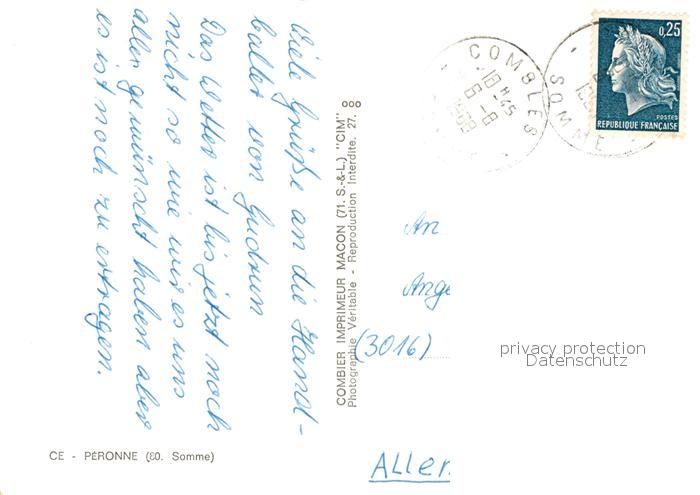 Viele Grüße an die Handl-
ballet von Gudrun
Das Wetter ist bis jetzt noch
nicht so wie wir es uns
allen gewünscht haben aber
es ist noch zu ertragen.
COMBIER IMPRIMEUR MACON (71. S.-&-L.) "CIM"
Photographie Véritable - Reproduction Interdite. 27.
CE - PÉRONNE (80. Somme)
COMBLES
18 H 45
6 - 8
SOMME
0,25
POSTES
REPUBLIQUE FRANÇAISE
An
Ange
(3016)
privacy protection
Datenschutz
Aller